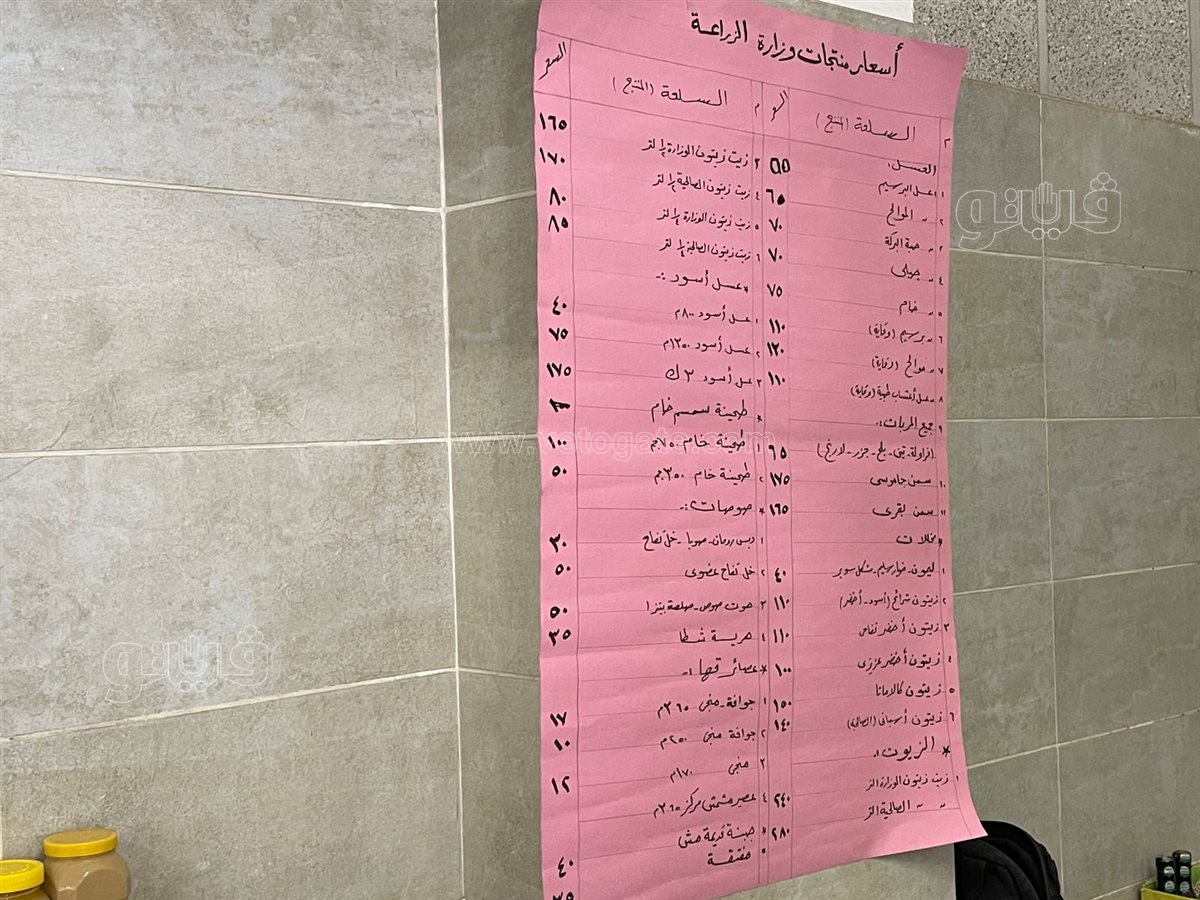 أسعار منتجات وزارة الزراعة
م السلعة (المنتج) السعر
العسل:
١ عسل البرسيم ٦٥
٢ " الموالح ٦٥
٣ " حبة البركة ٧٠
٤ " جبلى ٧٠
٥ " خام ٧٥
٦ " برسيم (وقاية) ١١٠
٧ " موالح (وقاية) ١٢٠
٨ " عسل أعشاب طبية (وقاية) ١١٠
٩ جميع المربات:
(فراولة - تين - بلح - جزر - لارنج) ٦٥
١٠ سمن جاموسى ١٧٥
١١ سمن بقرى ١٦٥
* مخللات
١ ليمون - خيار سليم - مشكل سوبر ٤٠
٢ زيتون شرائح (أسود - أخضر) ١١٠
٣ زيتون أخضر تفاحى ١١٠
٤ زيتون أخضر عزيزى ١٠٠
٥ زيتون كالاماتا ١٥٠
٦ زيتون أسبانى (الصالحية) ١٤٠
* الزيوت:
١ زيت زيتون الوزارة لتر ٢٤٠
" " الصالحية لتر ٢٨٠
م السلعة (المنتج) السعر
٣ زيت زيتون الوزارة ١/٢ لتر ١٦٥
٤ زيت زيتون الصالحية ١/٢ لتر ١٧٠
٥ زيت زيتون الوزارة ١/٤ لتر ٨٠
٦ زيت زيتون الصالحية ١/٤ لتر ٨٥
* عسل أسود :-
١ عسل أسود ٨٠٠م ٤٠
٢ عسل أسود ١٣٥٠م ٧٥
٣ عسل أسود ٣ ك ١٧٥
* طحينة سمسم خام
١ طحينة خام ٧٥٠جم ١٠٠
٢ طحينة خام ٣٥٠جم ٥٠
* صوصات :-
١ دبس رومان - صويا - خل تفاح ٣٠
٢ خل تفاح عضوى ٥٠
٣ هوت صوص - صلصة بيتزا ٥٠
٤ هريسة شطا ٣٥
* عصائر قها :-
١ جوافة - منجى ٣٦٥م ١٧
٢ جوافة منجى ٢٥٠م ١٠
٣ منجى ١٧٠م ١٢
٤ عصير مشمش مركز ٣٦٥م
* جبنة قديمة مش ٤٠
" مفتقة ٣٥
ڤيتو
ڤيتو
www.vetogate.com